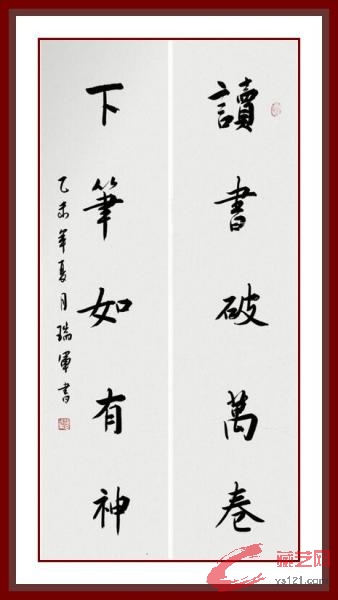 讀書破萬卷
下筆如有神
乙未年夏月瑞軍書
藏艺网
ys121.com